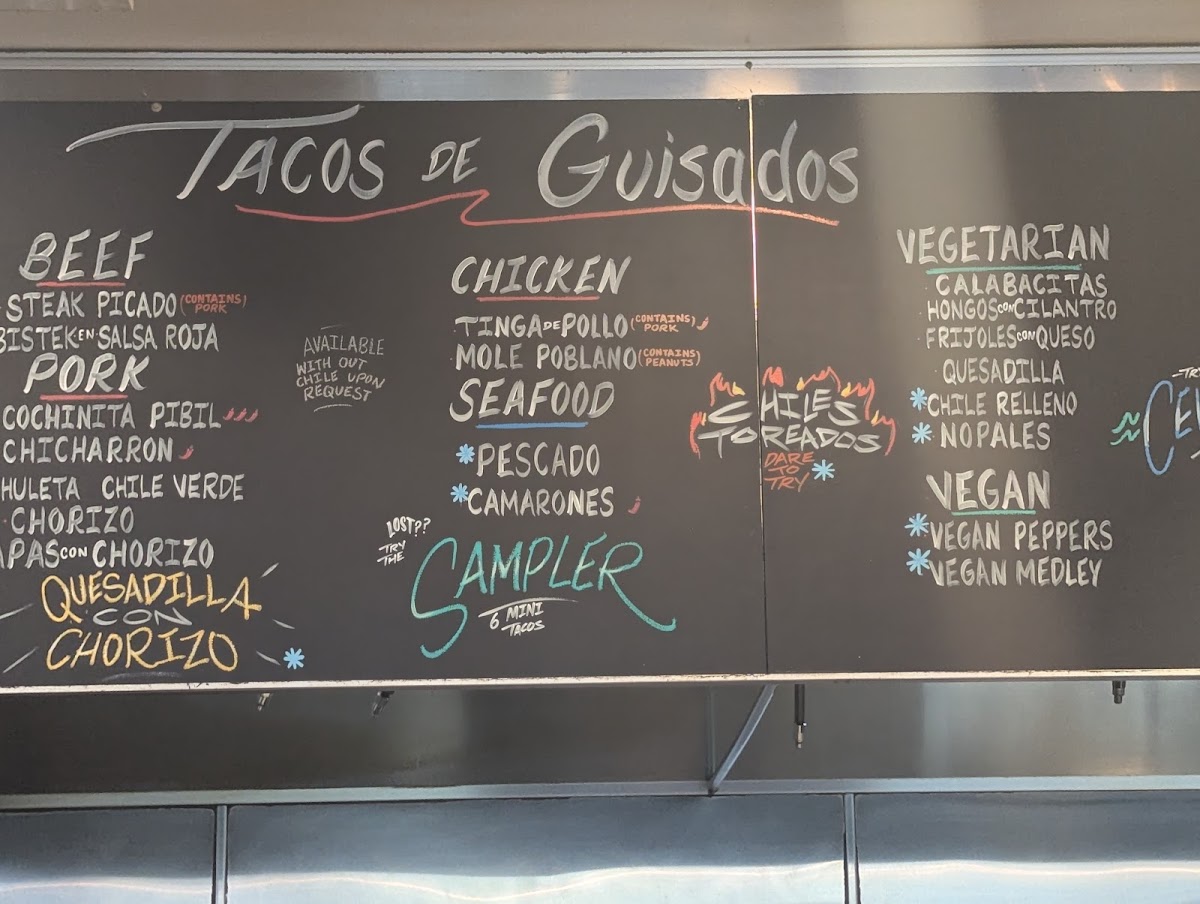 TACOS DE GUISADOS
BEEF
STEAK PICADO (CONTAINS PORK)
BISTEK EN SALSA ROJA
PORK
COCHINITA PIBIL
CHICHARRON
HULETA CHILE VERDE
CHORIZO
APAS CON CHORIZO
QUESADILLA
CON
CHORIZO
AVAILABLE
WITH OUT
CHILE UPON
REQUEST
CHICKEN
TINGA DE POLLO (CONTAINS PORK)
MOLE POBLANO (CONTAINS PEANUTS)
SEAFOOD
*PESCADO
*CAMARONES
LOST??
TRY
THE
SAMPLER
6 MINI
TACOS
CHILES
TOREADOS
DARE
TO
TRY *
VEGETARIAN
CALABACITAS
HONGOS CON CILANTRO
FRIJOLES CON QUESO
QUESADILLA
*CHILE RELLENO
*NOPALES
VEGAN
*VEGAN PEPPERS
*VEGAN MEDLEY